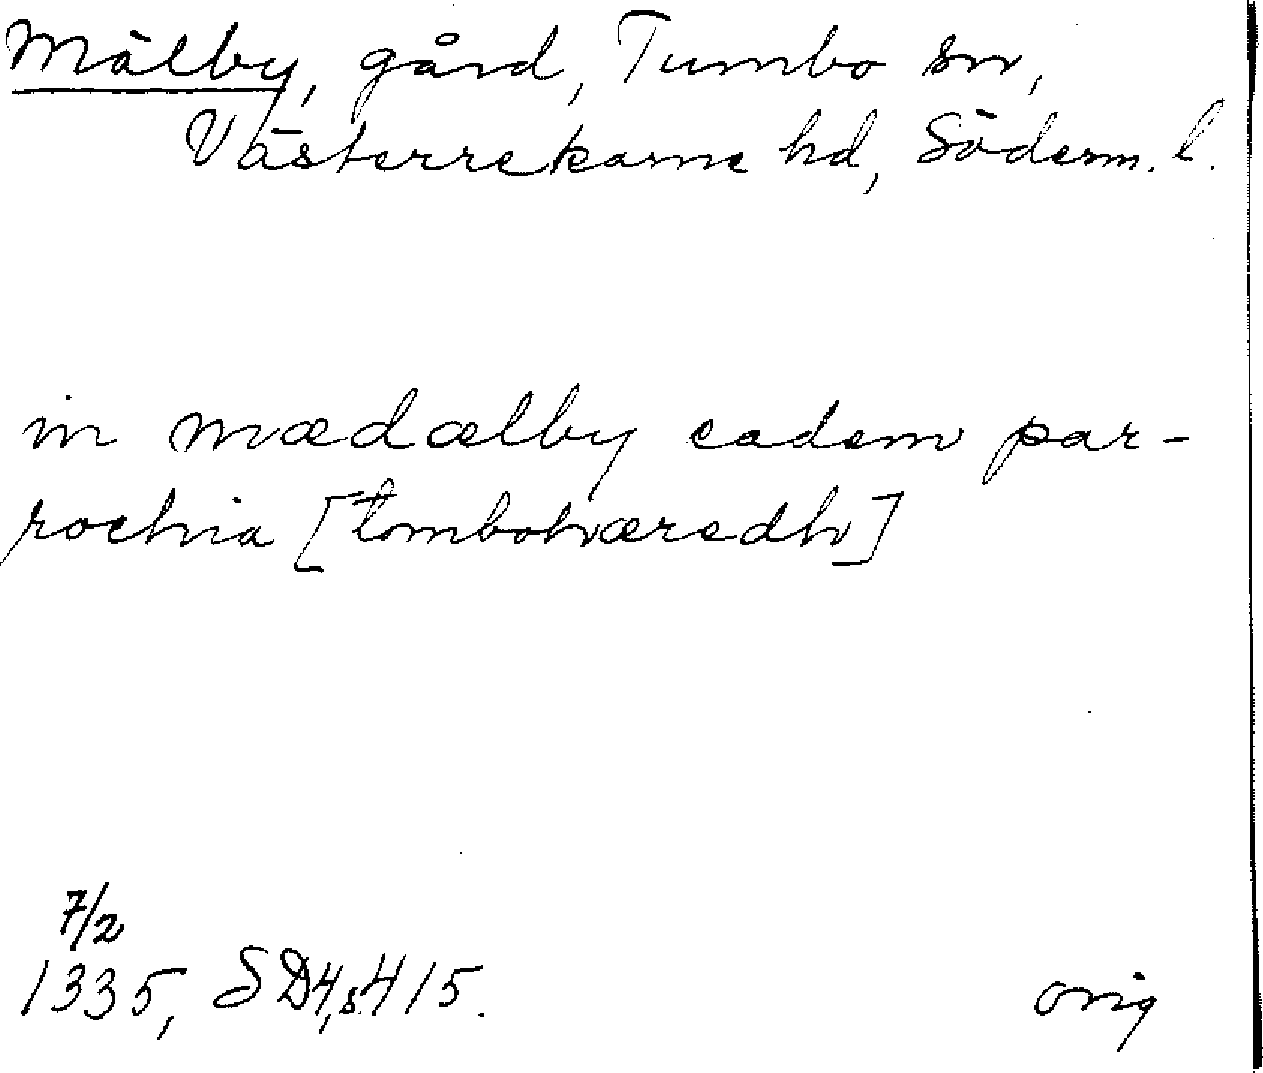 Mälby, gård, Tumbo sn,
Västerrekarne hd, Söderm. l.
in mædælby eadem par-
rochia [tombohæredh]
7/2
1335, SD4, s. 415.
orig